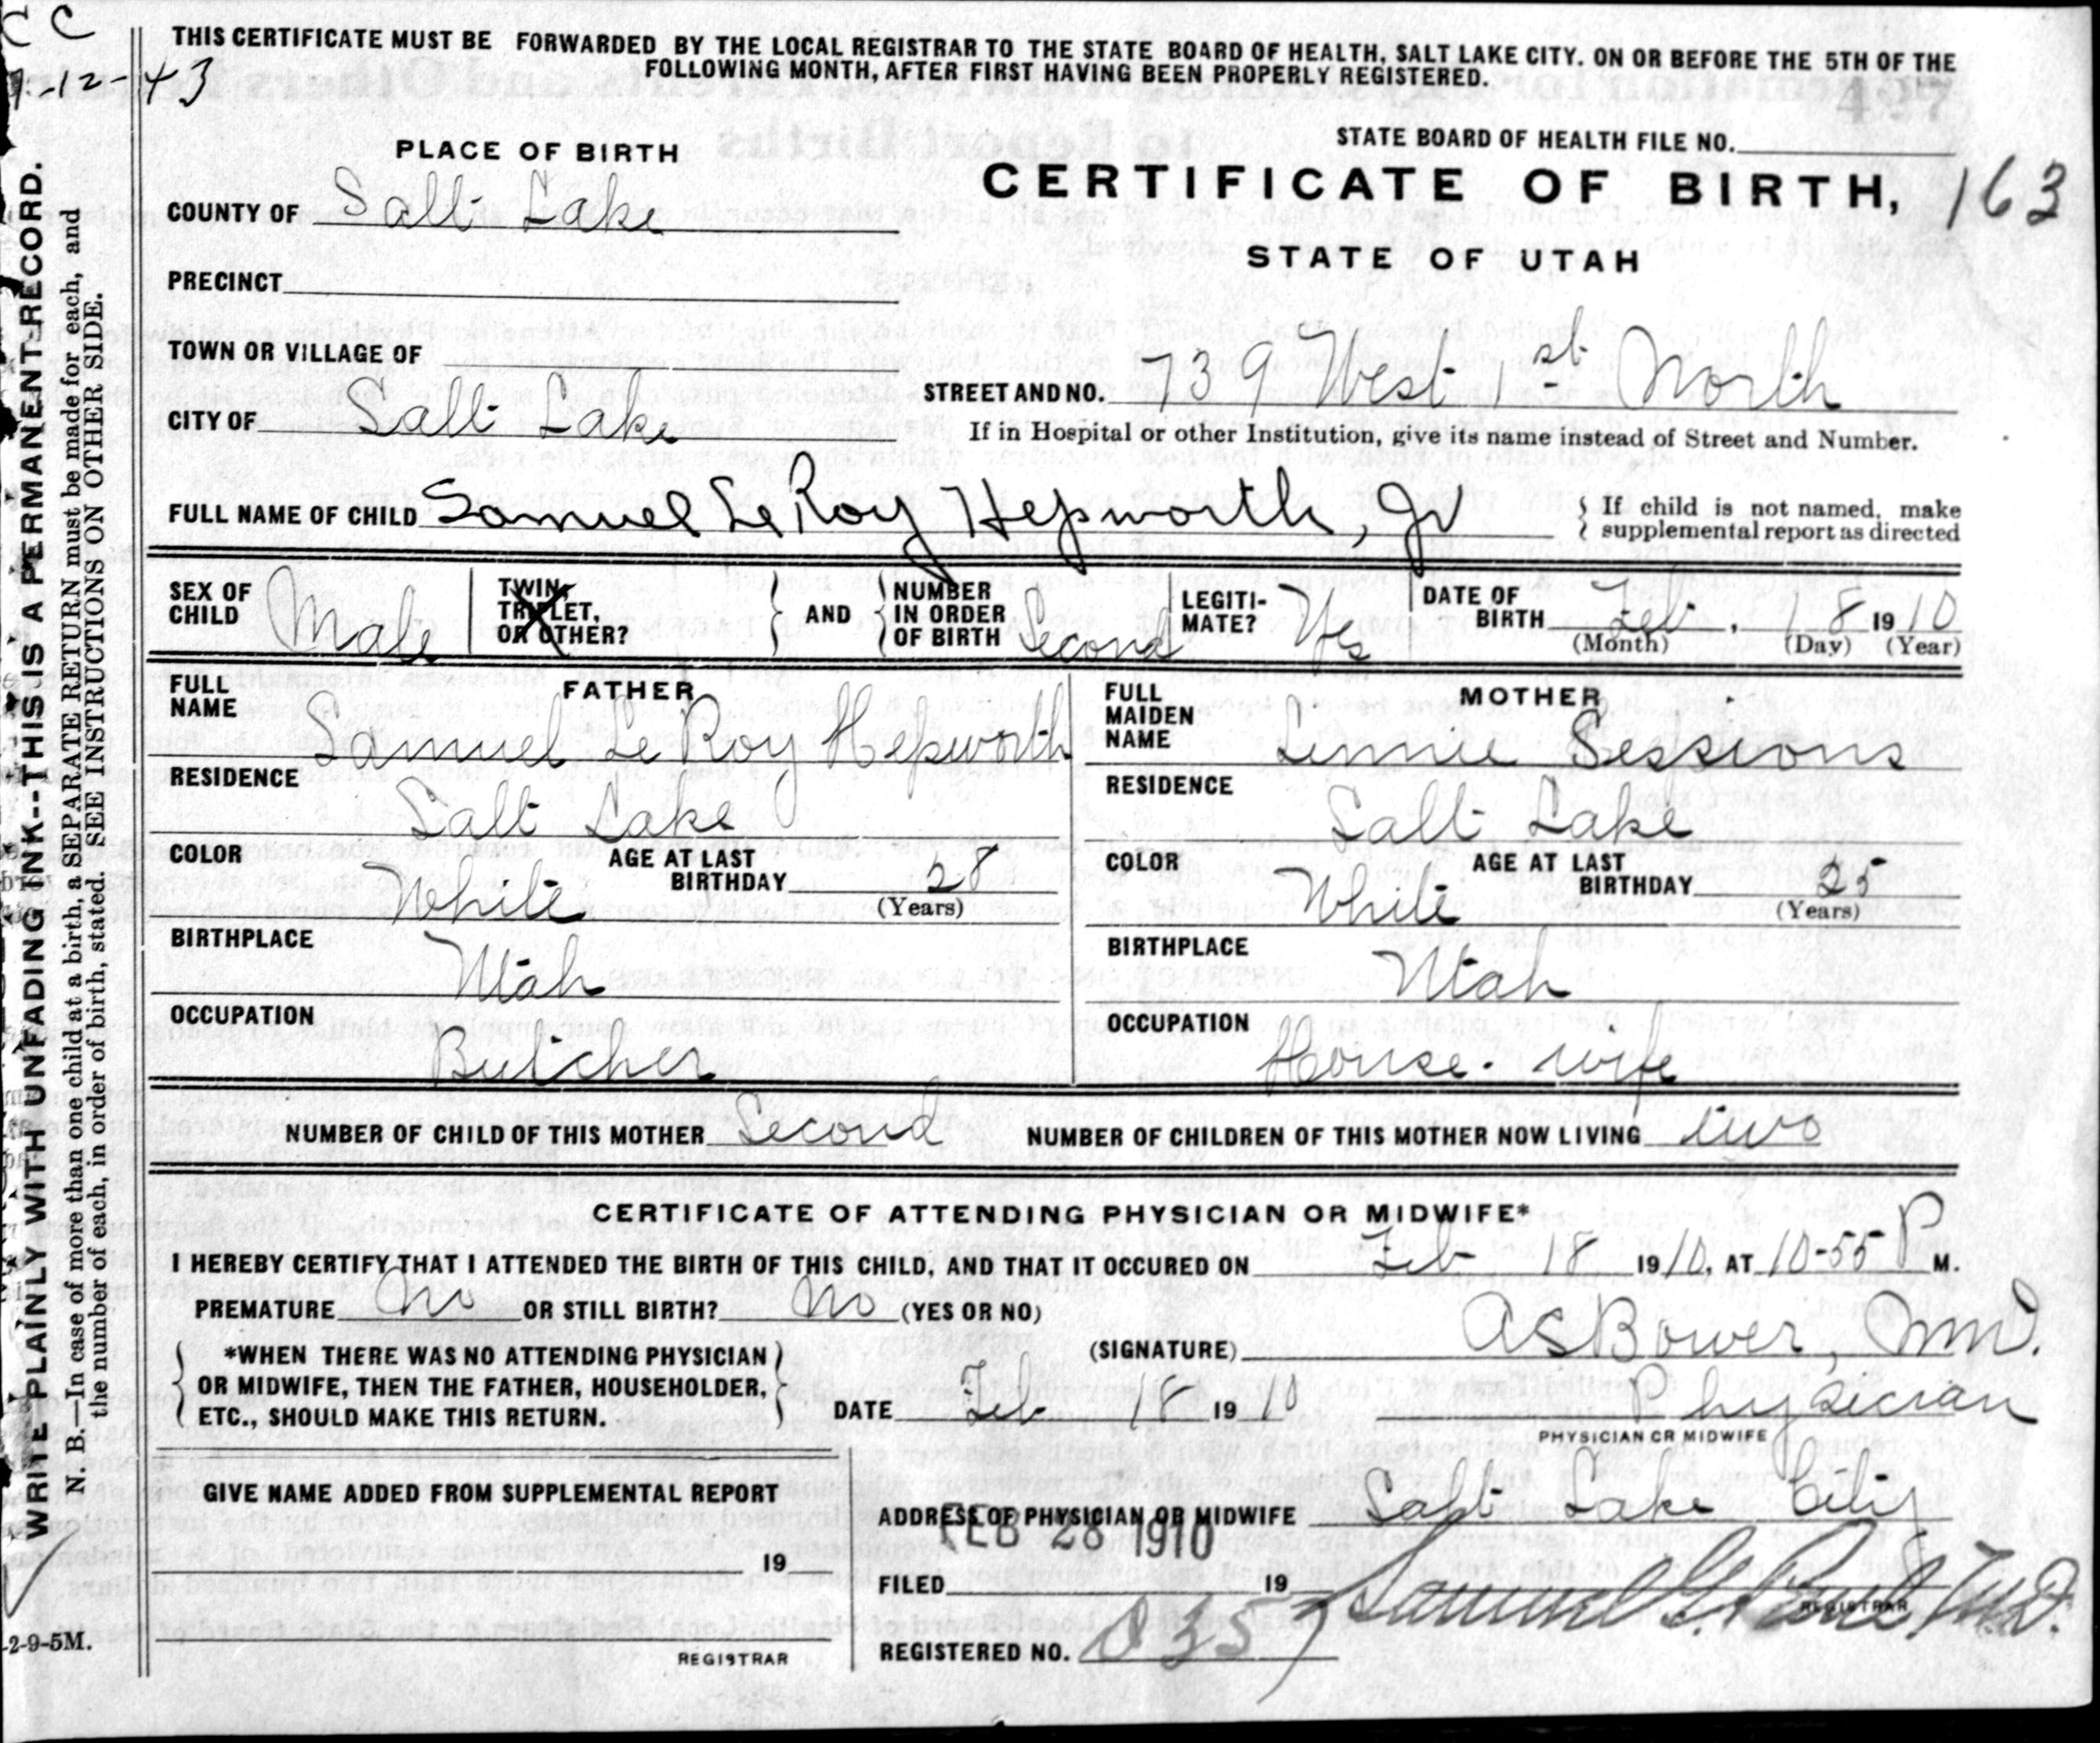 C C
1-12-43
THIS CERTIFICATE MUST BE FORWARDED BY THE LOCAL REGISTRAR TO THE STATE BOARD OF HEALTH, SALT LAKE CITY. ON OR BEFORE THE 5TH OF THE
FOLLOWING MONTH, AFTER FIRST HAVING BEEN PROPERLY REGISTERED.
WRITE PLAINLY WITH UNFADING INK--THIS IS A PERMANENT RECORD.
N. B.—In case of more than one child at a birth, a SEPARATE RETURN must be made for each, and
the number of each, in order of birth, stated. SEE INSTRUCTIONS ON OTHER SIDE.
PLACE OF BIRTH
STATE BOARD OF HEALTH FILE NO.
COUNTY OF Salt Lake
CERTIFICATE OF BIRTH, 163
STATE OF UTAH
PRECINCT
TOWN OR VILLAGE OF
STREET AND NO. 739 West 1st North
CITY OF Salt Lake
If in Hospital or other Institution, give its name instead of Street and Number.
FULL NAME OF CHILD Samuel LeRoy Hepworth, Jr
If child is not named, make
supplemental report as directed
SEX OF CHILD Male
TWIN, TRIPLET, OR OTHER?
AND
NUMBER IN ORDER OF BIRTH Second
LEGITIMATE? Yes
DATE OF BIRTH Feb, 18 1910
(Month) (Day) (Year)
FATHER
FULL NAME Samuel LeRoy Hepworth
MOTHER
FULL MAIDEN NAME Linnie Sessions
RESIDENCE Salt Lake
RESIDENCE Salt Lake
COLOR White AGE AT LAST BIRTHDAY 28 (Years)
COLOR White AGE AT LAST BIRTHDAY 25 (Years)
BIRTHPLACE Utah
BIRTHPLACE Utah
OCCUPATION Butcher
OCCUPATION House-wife
NUMBER OF CHILD OF THIS MOTHER Second NUMBER OF CHILDREN OF THIS MOTHER NOW LIVING two
CERTIFICATE OF ATTENDING PHYSICIAN OR MIDWIFE*
I HEREBY CERTIFY THAT I ATTENDED THE BIRTH OF THIS CHILD, AND THAT IT OCCURED ON Feb 18 1910, AT 10-55 P M.
PREMATURE No OR STILL BIRTH? No (YES OR NO)
*WHEN THERE WAS NO ATTENDING PHYSICIAN
OR MIDWIFE, THEN THE FATHER, HOUSEHOLDER,
ETC., SHOULD MAKE THIS RETURN.
(SIGNATURE) AS Bower, M.D.
DATE Feb 18 1910 Physician
PHYSICIAN OR MIDWIFE
GIVE NAME ADDED FROM SUPPLEMENTAL REPORT
19
REGISTRAR
ADDRESS OF PHYSICIAN OR MIDWIFE Salt Lake City
FEB 28 1910
FILED 19 Samuel G. Paul M.D.
REGISTRAR
REGISTERED NO. 0357
2-9-5M.